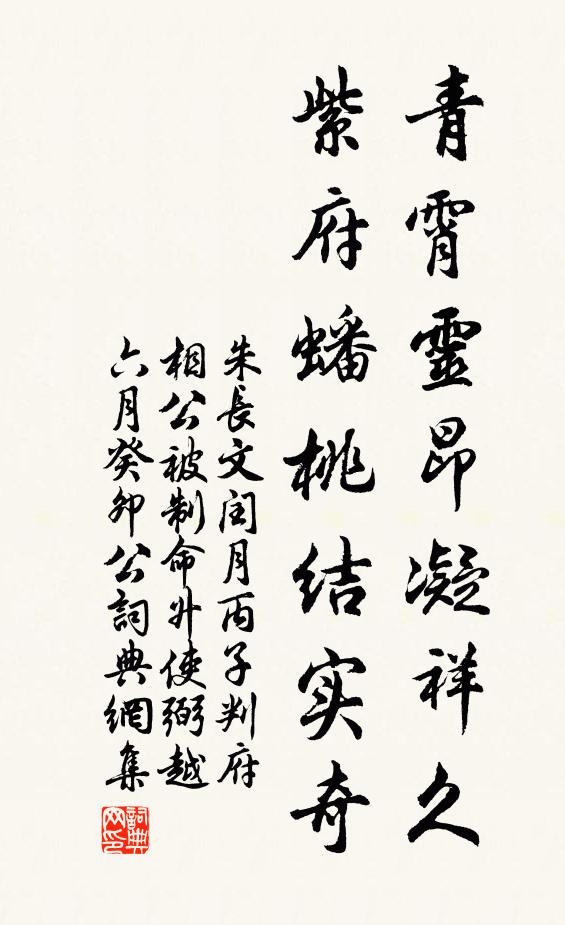 青霄靈昂凝祥久
紫府蟠桃结实奇
朱長文闰月丙子判府
相公被制命升使弼越
六月癸卯公詞典網集
詞典网印